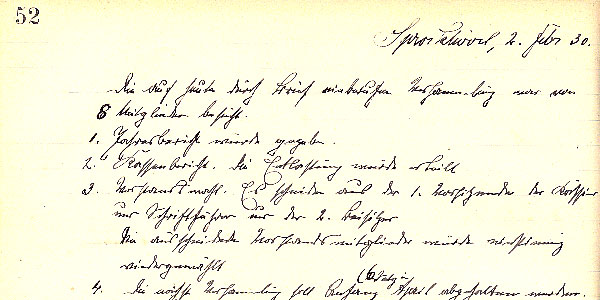 52
Sprockhövel, 2. Febr 30.
Die auf heute durch Brief einberufene Versammlung war von
8 Mitglieder besucht.
1. Jahresbericht wurde gegeben.
2. Kassenbericht. Die Entlastung wurde erteilt
3. Vorstandswahl. Es scheiden aus der 1. Vorsitzende der Kassierer
und Schriftführer und der 2. Beisitzer
Die ausscheidende Vorstandsmitglieder wurde einstimmig
wiedergewählt
4. Die nächste Versammlung soll Anfang April abgehalten werden.